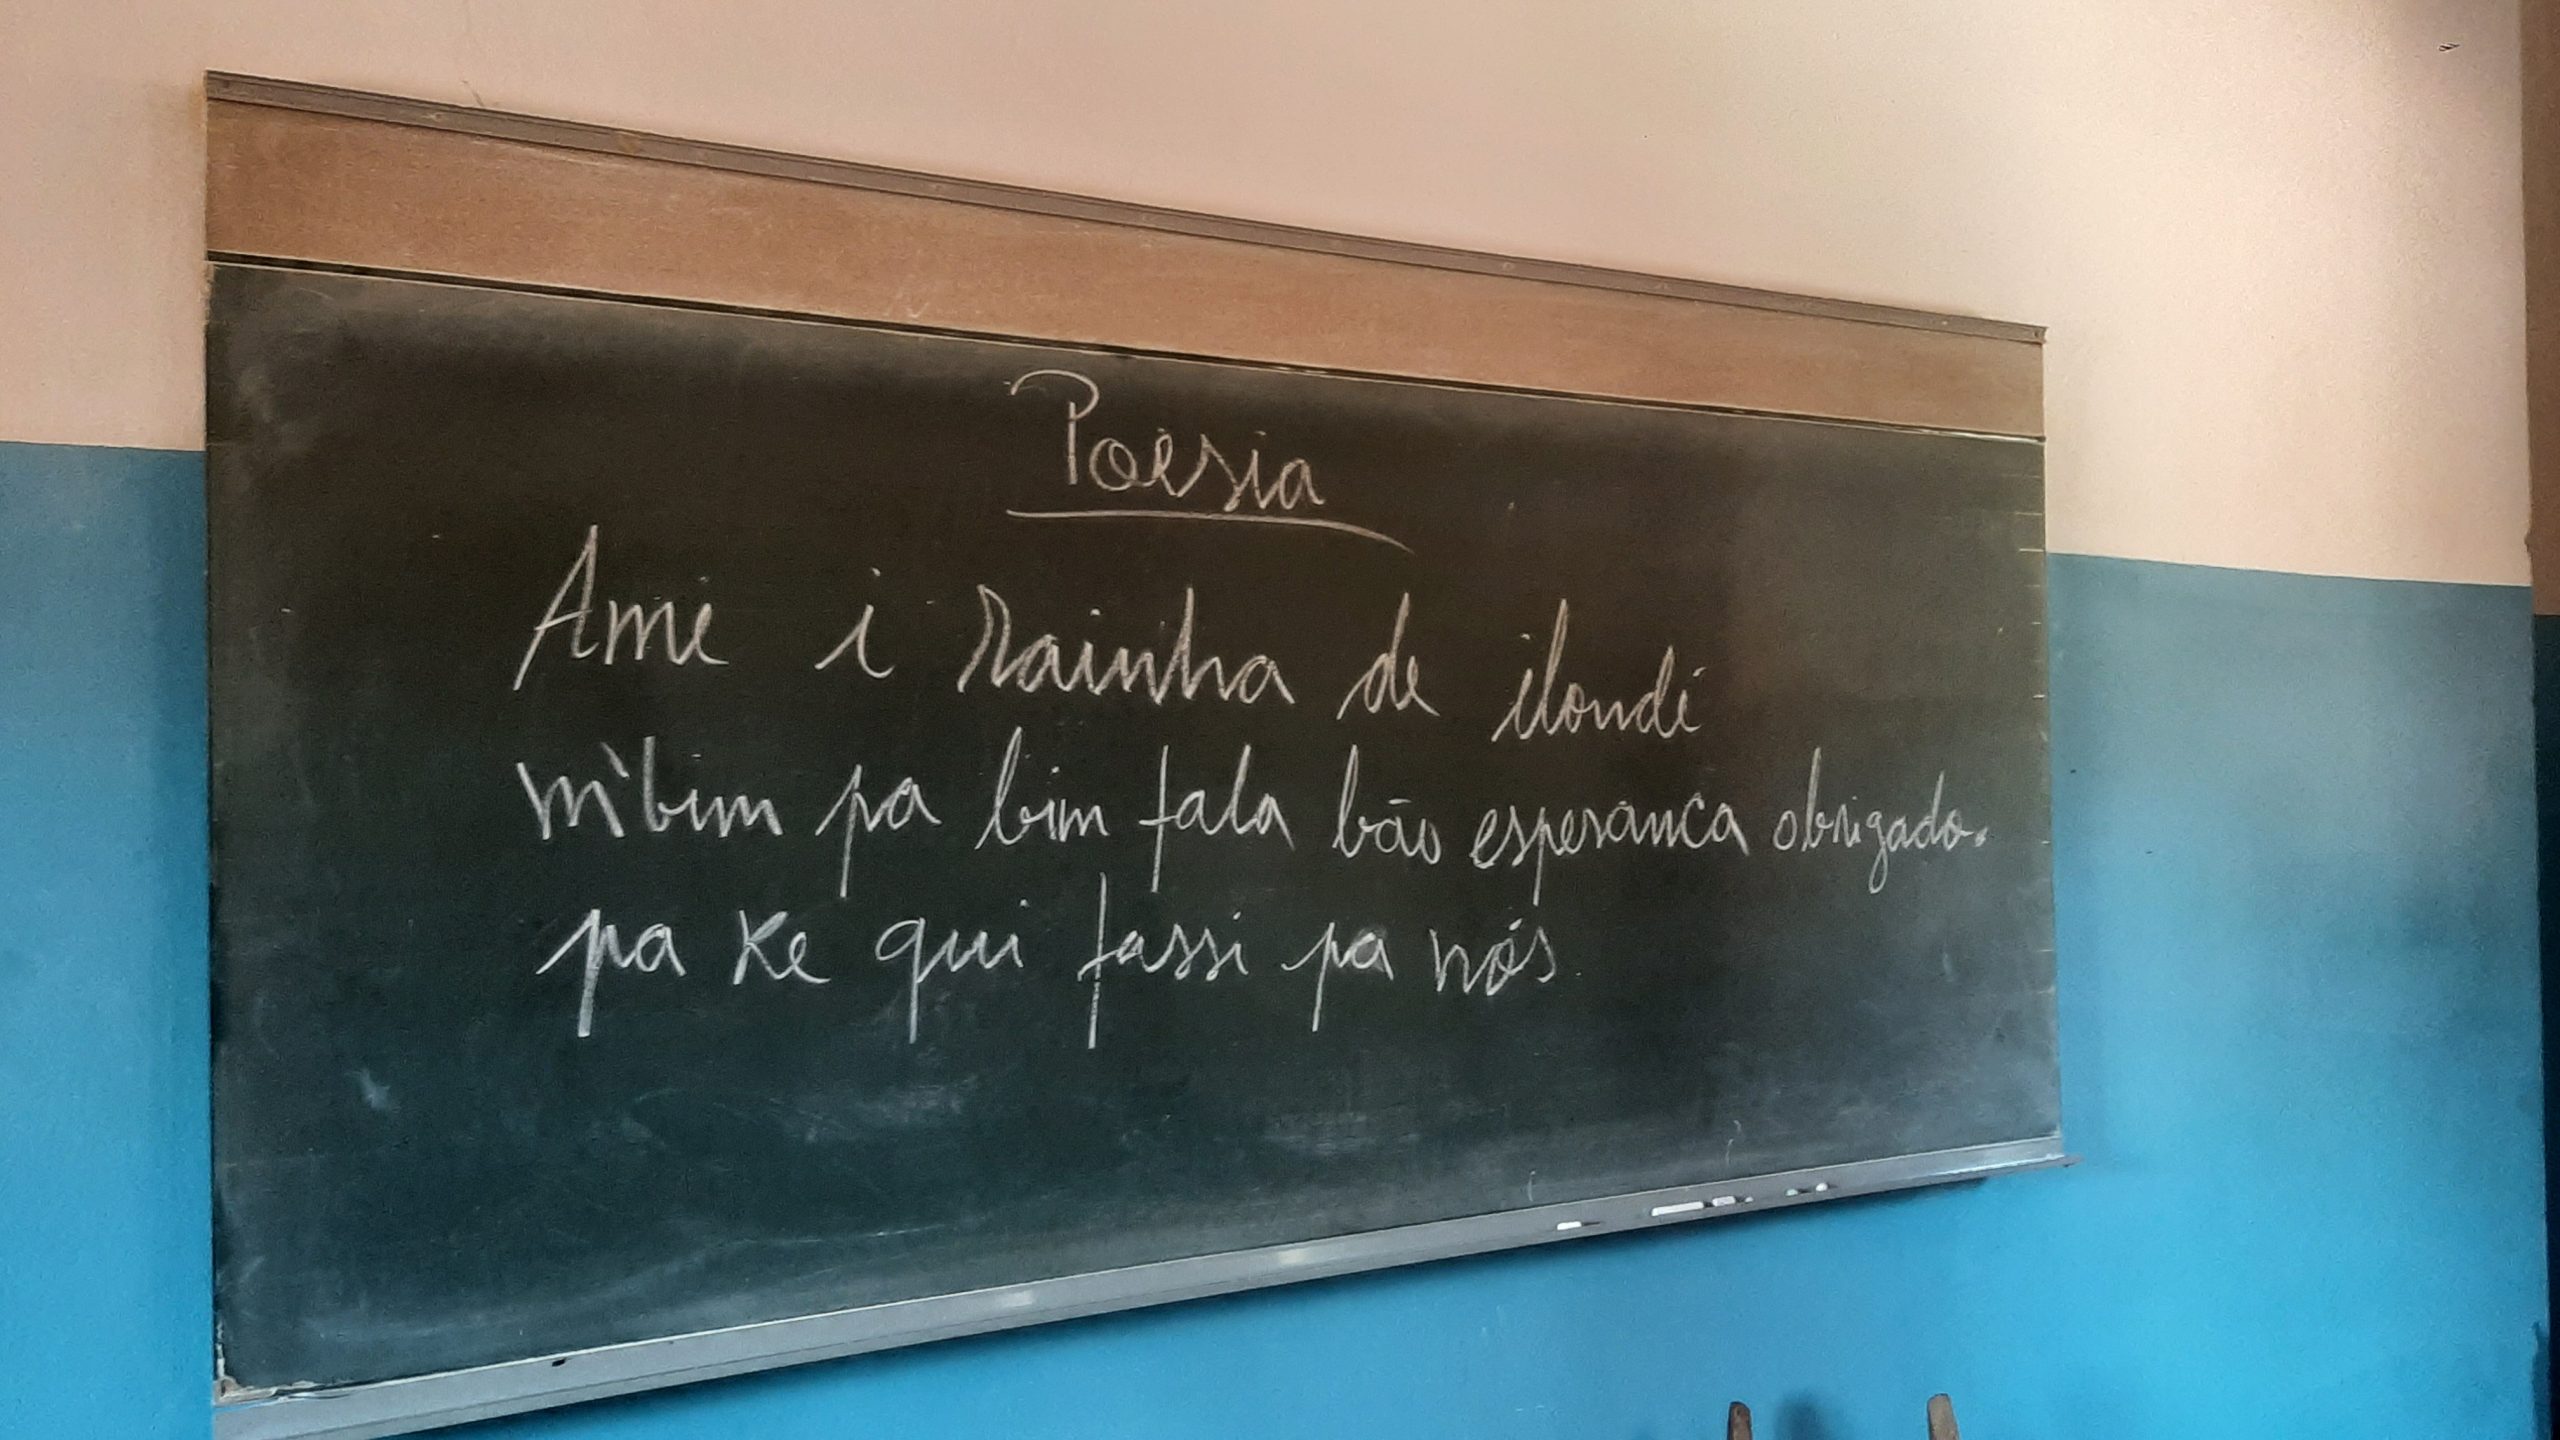 Poesia
Ame i rainha de ilondé
m'bim pa bim fala bão esperanca obrigado.
pa ke qui fassi pa nós